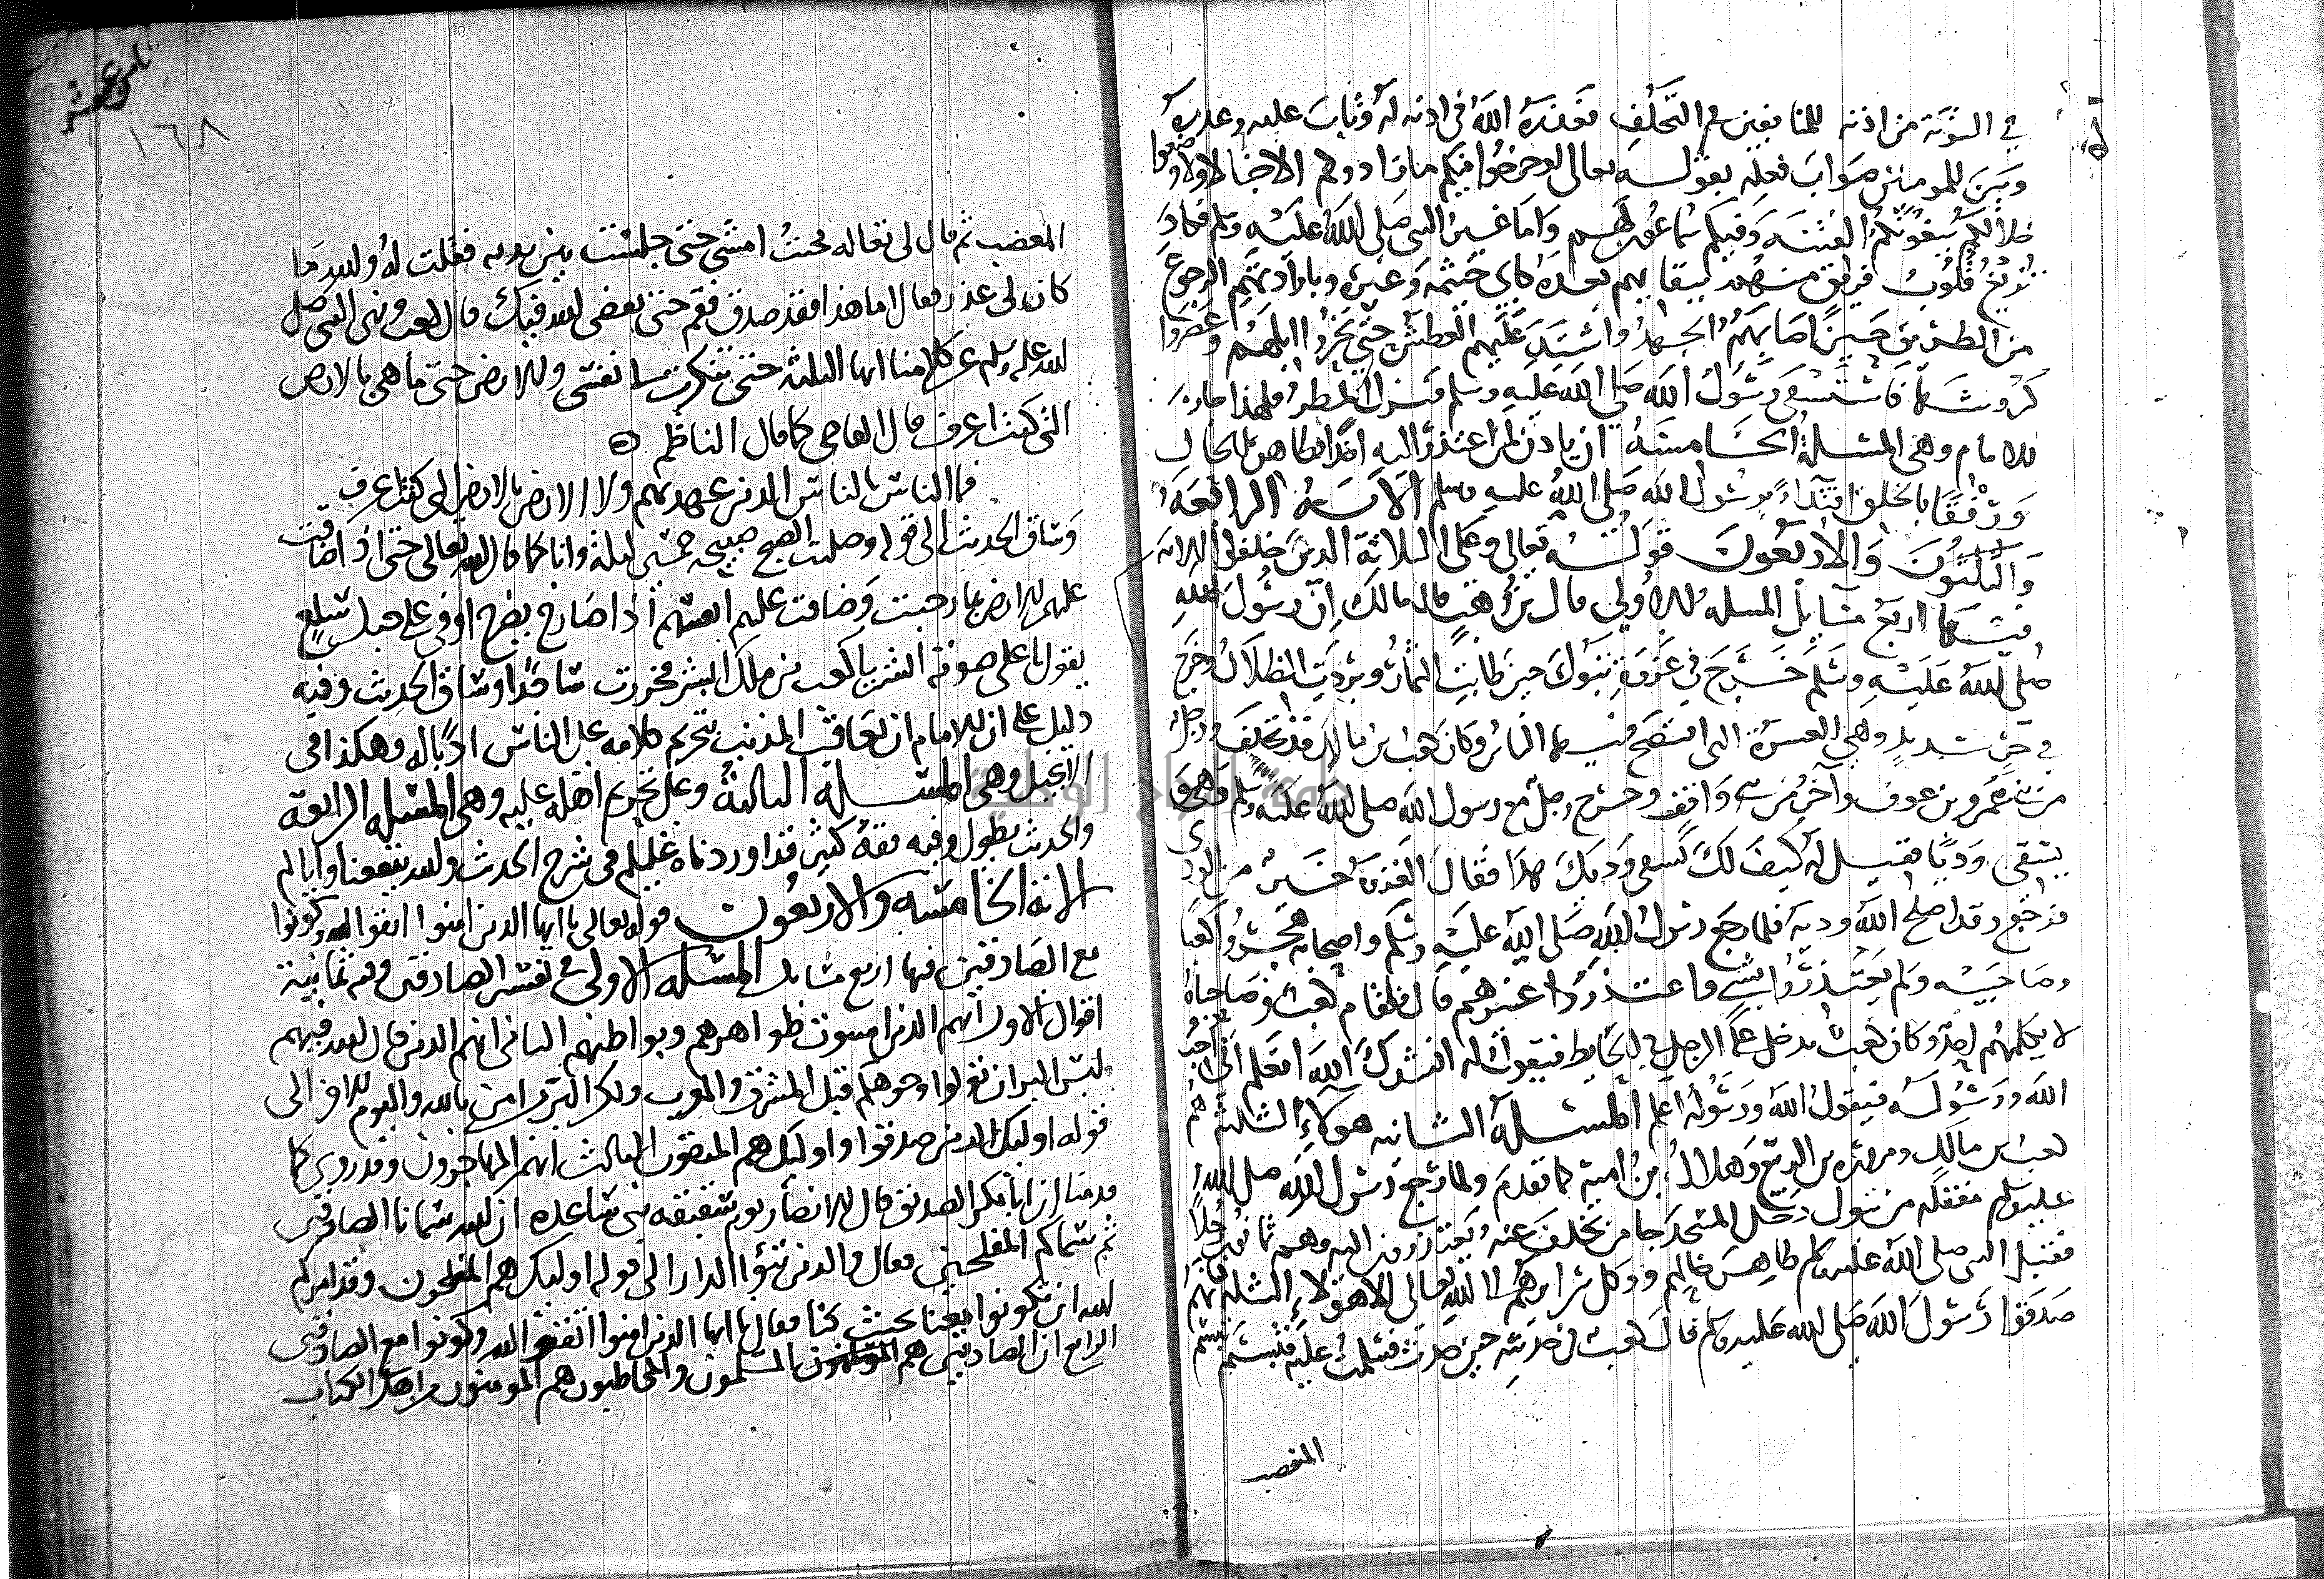 في التوبة من اذنه للمنافقين في التخلف فعذره الله في اذنه له وتاب عليه وعذره
وبين للمومنين صواب فعله بقوله تعالى لو خرجوا فيكم ما زادوكم الا خبالا ولاوضعوا
خلالكم يبغونكم الفتنة وفيكم سماعون لهم واما غير النبي صلى الله عليه وسلم فكاد
تزيغ قلوب فريق منهم ببقايهم بعده كابي خيثمة وغيره وبارادتهم الرجوع
من الطريق حين اصابهم الجهد واشتد عليهم العطش حتى نحروا ابلهم وعصروا
كروشها فاستسقى رسول الله صلى الله عليه وسلم فنزل المطر فلهذا صار
للامام وهي المسئلة الخامسة ان ياذن لمن اعتذر اليه اخذا بظاهر الحال
ورفقا بالخلق اقتداء برسول الله صلى الله عليه وسلم الاية الرابعة
والثلثون والاربعون قوله تعالى وعلى الثلاثة الذين خلفوا الاية
فيها اربع مسايل المسلة الاولى قال بن وهب قال مالك ان رسول الله
صلى الله عليه وسلم خرج في غزوة تبوك حين طابت الثمار وبردت الظلال وخرج
في حر شديد وهي العسرة التي افتضح فيها الناس وكان كعب بن مالك قد تخلف ورجل
من بني عمرو بن عوف وآخر من بني واقف وخرج رجل مع رسول الله صلى الله عليه وسلم وهو
يسقي وديا فقيل له كيف لك بسقي وديك هذا فقال الغزو خير من الودي
فرجع وقد اصلح الله وديه فلما رجع رسول الله صلى الله عليه وسلم واصحابه هجروا كعبا
وصاحبيه ولم يعتذروا بشي واعتذر غيرهم قال فاقام كعب وصاحباه
لا يكلمهم احد وكان كعب يدخل على الرجل في الحايط فيقول له انشدك الله اتعلم اني احب
الله ورسوله فيقول الله ورسوله اعلم المسئلة الثانيه هولاء الثلثة هم
كعب بن مالك ومرارة بن الربيع وهلال بن امية كما تقدم ولما رجع رسول الله صلى الله
عليه وسلم مقفله من تبوك دخل المسجد جا من تخلف عنه يعتذرون اليه وهم ثمانون رجلا
فقبل النبي صلى الله عليه وسلم ظاهر حالهم ووكل سرايرهم الى الله تعالى الا هولاء الثلثة فانهم
صدقوا رسول الله صلى الله عليه وسلم قال كعب في حديثه حين حدث فسلمت عليه فتبسم تبسم
المغضب
ثامن عشر
١٦٨
المغضب ثم قال لي تعاله فجئت امشي حتى جلست بين يديه فقلت له والله ما
كان لي عذر فقال اما هذا فقد صدق فقم حتى يقضي الله فيك قال كعب ونهى النبي صلى
الله عليه وسلم عن كلامنا ايها الثلثة حتى تنكرت لي نفسي والارض حتى ما هي بالارض
التي كنت اعرف قال القاضي كما قال الناظم ه
فما الناس بالناس الذين عهدتهم ولا الارض بالارض التي كنت اعرف
وساق الحديث الى قوله وصليت الصبح صبيحة خمسين ليلة وانا كما قال الله تعالى حتى اذا ضاقت
عليهم الارض بما رحبت وضاقت عليهم انفسهم اذا صارخ يصرخ اوفى على جبل سلع
يقول باعلى صوته ابشر يا كعب بن ملك ابشر فخررت ساجدا وساق الحديث وفيه
دليل على ان للامام ان يعاقب المذنب بتحريم كلامه على الناس ادبا له وهكذا في
الانجيل وهي المسئلة الثالثة وعلى تحريم اهله عليه وهي المسئلة الرابعة
والحديث يطول وفيه فقه كثير قد اوردناه عليكم في شرح الحديث والله ينفعنا واياكم
الاية الخامسة والاربعون قوله تعالى يا ايها الذين امنوا اتقوا الله وكونوا
مع الصادقين فيها اربع مسايل المسئلة الاولى في تفسير الصادقين وفيه ثمانية
اقوال الاول انهم الذين استوت ظواهرهم وبواطنهم الثاني انهم الذين قال الله فيهم
ليس البر ان تولوا وجوهكم قبل المشرق والمغرب ولكن البر من امن بالله واليوم الاخر الى
قوله اوليك الذين صدقوا واوليك هم المتقون الثالث انهم المهاجرون وقد روي كما
قدمنا ان ابا بكر الصديق قال للانصار يوم سقيفة بني ساعدة ان الله سمانا الصادقين
ثم سماكم المفلحين فقال والذين تبؤا الدار الى قوله اوليك هم المفلحون وقد امركم
الله ان تكونوا معنا حيث كنا فقال يا ايها الذين امنوا اتقوا الله وكونوا مع الصادقين
الرابع ان الصادقين هم المسلمون والمخاطبون هم المومنون من اهل الكتاب